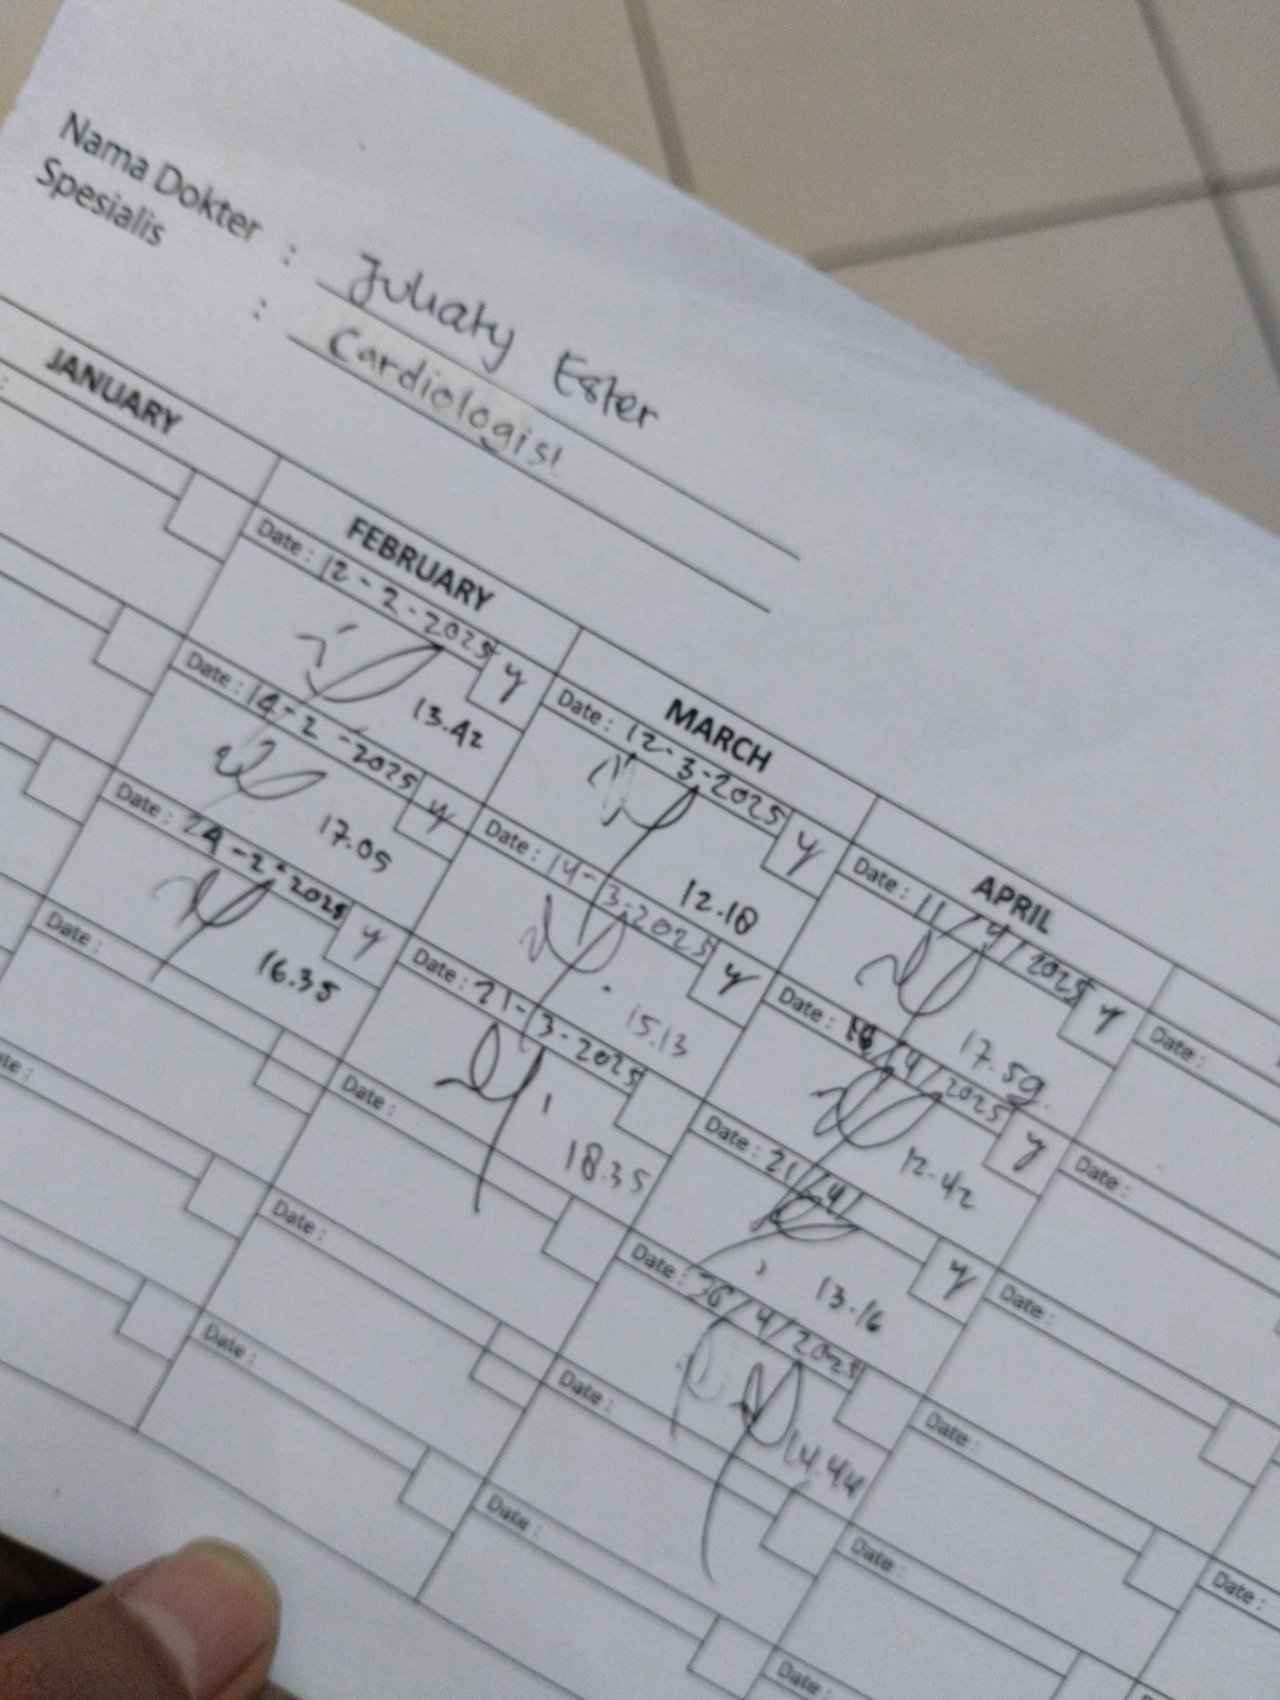 Nama Dokter : Juliaty Ester
Spesialis : Cardiologist
JANUARY
FEBRUARY
MARCH
APRIL
Date : 12-2-2025 y
13.42
Date : 14-2-2025 y
17.05
Date : 24-2-2025 y
16.35
Date :
Date :
Date :
Date : 12-3-2025 y
12.18
Date : 14-3-2025 y
15.13
Date : 21-3-2025
18.35
Date :
Date :
Date :
Date : 11/4/2025 y
17.59
Date : /4/2025 y
12.42
Date : 21/4/ y
13.16
Date : 30/4/2025
14.44
Date :
Date :
Date :
Date :
Date :
Date :
Date :
Date :